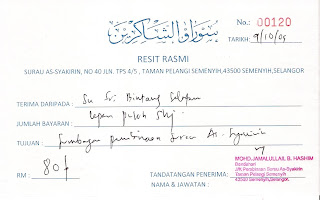 سوراو الشاكرين
No.: 00120
TARIKH: 9/10/09
RESIT RASMI
SURAU AS-SYAKIRIN, NO 40 JLN. TPS 4/5 , TAMAN PELANGI SEMENYIH,43500 SEMENYIH,SELANGOR
TERIMA DARIPADA : Su Sri Bintang Selatan
JUMLAH BAYARAN : Lapan puluh shj.
TUJUAN : Sumbangan As-Syakirin
RM : 80/
TANDATANGAN PENERIMA:
NAMA & JAWATAN :
MOHD JAMALULLAIL B. HASHIM
Bendahari
J/K Pengurusan Surau As-Syakirin
Taman Pelangi Semenyih
43500 Semenyih, Selangor.